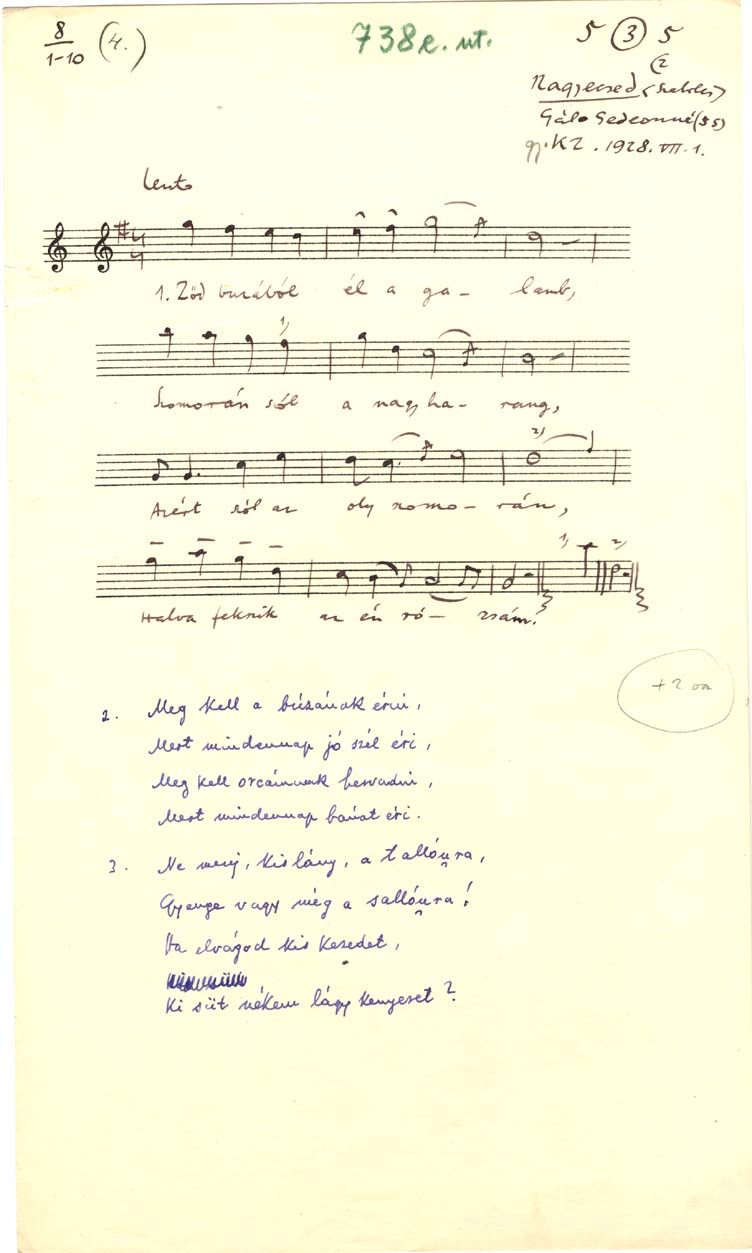 8
1-10
(4.)
738e. ut.
5 (3) 5
(2
Nagyecsed (Szatmár)
Gáló Gedeonné (55)
gy. KZ. 1928. VII. 1.
Lento
1. Zöd buzából él a ga- lamb,
Szomorán sól a nagyha- rang,
1)
Azért sól az oly szomo- rán,
2)
Halva fekszik az én ró- zsám!
1) 2)
+ 2 vsz
2. Meg kell a búzának érni,
Mert mindennap jó szél éri,
Meg kell orcámnak hervadni,
Mert mindennap bánat éri.
3. Ne menj, kislány, a tallóura,
Gyenge vagy még a sallóura!
Ha elvágod kis kezedet,
Ki süt nékem lágy kenyeret?